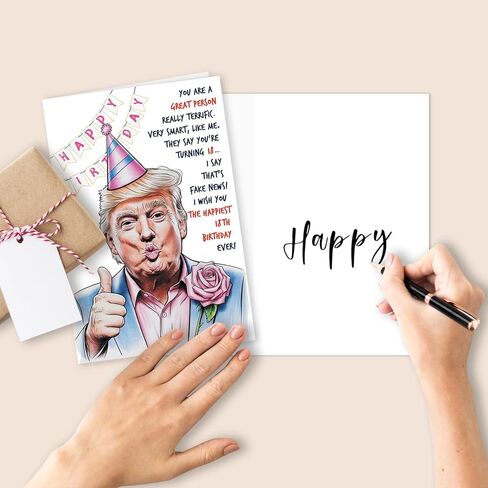 HAPPY
BIRTHDAY
YOU ARE A
GREAT PERSON
REALLY TERRIFIC.
VERY SMART, LIKE ME.
THEY SAY YOU'RE
TURNING 18...
I SAY
THAT'S
FAKE NEWS!
I WISH YOU
THE HAPPIEST
18TH
BIRTHDAY
EVER!
Happy